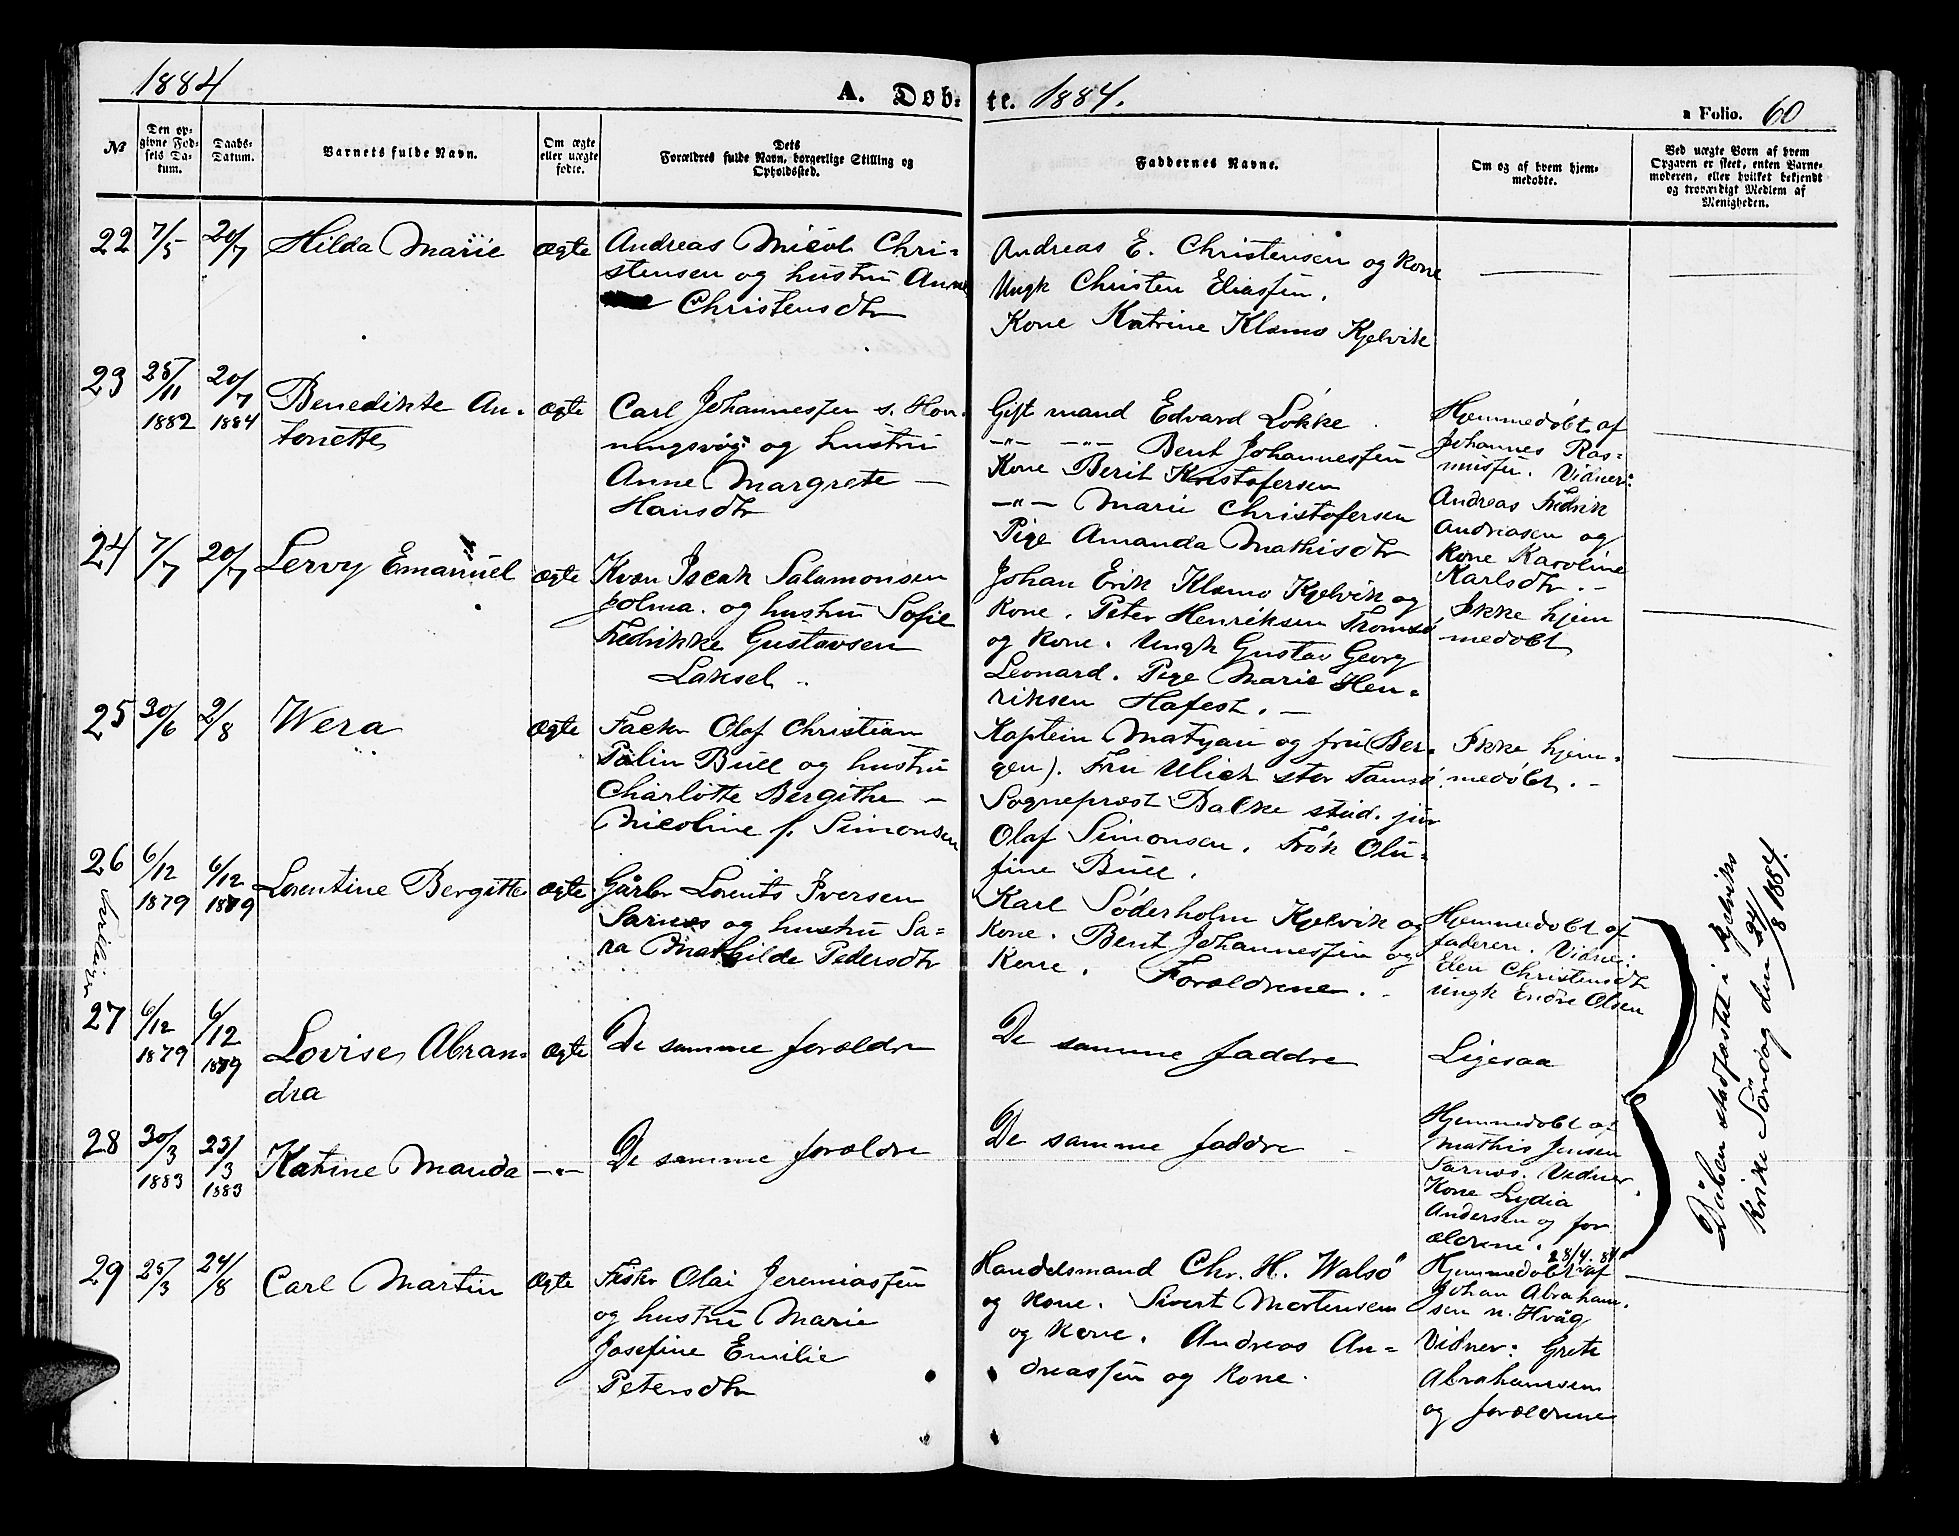 1884
A. Døb-
te. 1884.
a Folio. 60
№
Den op-
givne Fød-
sels Da-
tum.
Daabs-
Datum.
Barnets fulde Navn.
Om ægte
eller uægte
fødte.
Dets
Forældres fulde Navn, borgerlige Stilling og
Opholdssted.
Faddernes Navne.
Om og af hvem hjem-
medøbte.
Ved uægte Børn af hvem
Opgaven er skeet, enten Barne-
moderen, eller hvilket bekjendt
og troværdigt Medlem af
Menigheden.
22
7/5
20/7
Hilda Marie
Ægte
Andreas Micol Chri-
stensen og hustru Anne
Christensdtr
Andreas E. Christensen og kone
Ungk Christen Eliassen.
Kone Katrine Klæmo Kjelvik
23
25/11
1882
20/7
1884
Benedikte An-
tonette
ægte
Carl Johannessen s. Hon-
ningsvåg og hustru
Anne Margrete
Hansdtr
Gift mand Edvard Løkke
-"- -"- Bent Johannessen
Kone Berit Kristofersen
-"- Marie Christofersen
Pige Amanda Mathisdtr
Hjemmedøbt af
Johannes Ras-
mussen. Vidner:
Andreas Fredrik
Andreasen og
Kone Karoline
Karlsdtr. -
24
7/7
20/7
Lervy Emanuel
ægte
Kvæn Iscak Salamonsen
Jolma. og hustru Sofie
Fredrikke Gustavsen
Laksel..
Johan Erik Klæmo Kjelvik og
Kone. Peter Henriksen Tromsø
og kone. Ungk Gustav Georg
Leonard. Pige Marie Hen-
riksen Hafest. -
Ikke hjem
medøbt
25
30/6
2/8
Wera
Ægte
Olaf Christian
Palin Bull og hustru
Charlotte Bergithe -
Nicoline f. Simonsen
Kaptein og fru (Ber-
gen). Fru Ulich stor Tamsø
Sogneprest Balke stud. jur
Olaf Simonsen. Frøk Olu-
fine Bull.
Ikke hjem-
medøbt. -
26
6/12
1879
6/12
1879
Lorentine Bergitte
ægte
Gårbr Lorents Iversen
Sarnes og hustru Sa-
ra Mathilde Pedersdtr
Karl Søderholm Kjelvik og
Kone. Bent Johannessen og
Kone. Forældrene.
Hjemmedøbt af
faderen. Vidner:
Elen Christensdtr
ungk Endre Olsen
27
6/12
1879
6/12
1879
Lovise Abran-
dra
ægte
De samme forældre
De samme faddre
Ligesaa
28
30/3
1883
25/3
1883
Katrine Manda
-"-
De samme forældre
De samme faddre
Hjemmedøbt af
Mathis Jensen
Sarnes. Vidner
Kone Lydia
Andersen og for
ældrene.
Dåben stadfæstet i Kjelviks
kirke Søndag den 24/8 1884.
29
25/3
24/8
Carl Martin
Ægte
Fisker Olai Jeremiassen
og hustru Marie
Josefine Emilie
Petersdtr
Handelsmand Chr. H. Walsø
og kone. Sivert Mortensen
og kone. Andreas An-
dreassen og kone.
28/4. 84
Hjemmedøbt af
Johan Abraham-
sen n. Hvåg
Vidner: Grete
Abrahamsen
og forældrene